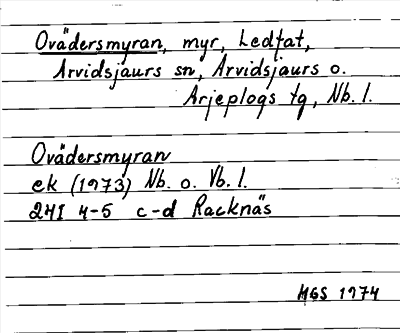 Ovädersmyran, myr, Ledfat,
Arvidsjaurs sn, Arvidsjaurs o.
Arjeplogs tg, Nb. l.
Ovädersmyran
ek (1973) Nb. o. Vb. l.
24I 4-5 c-d Racknäs
MGS 1974